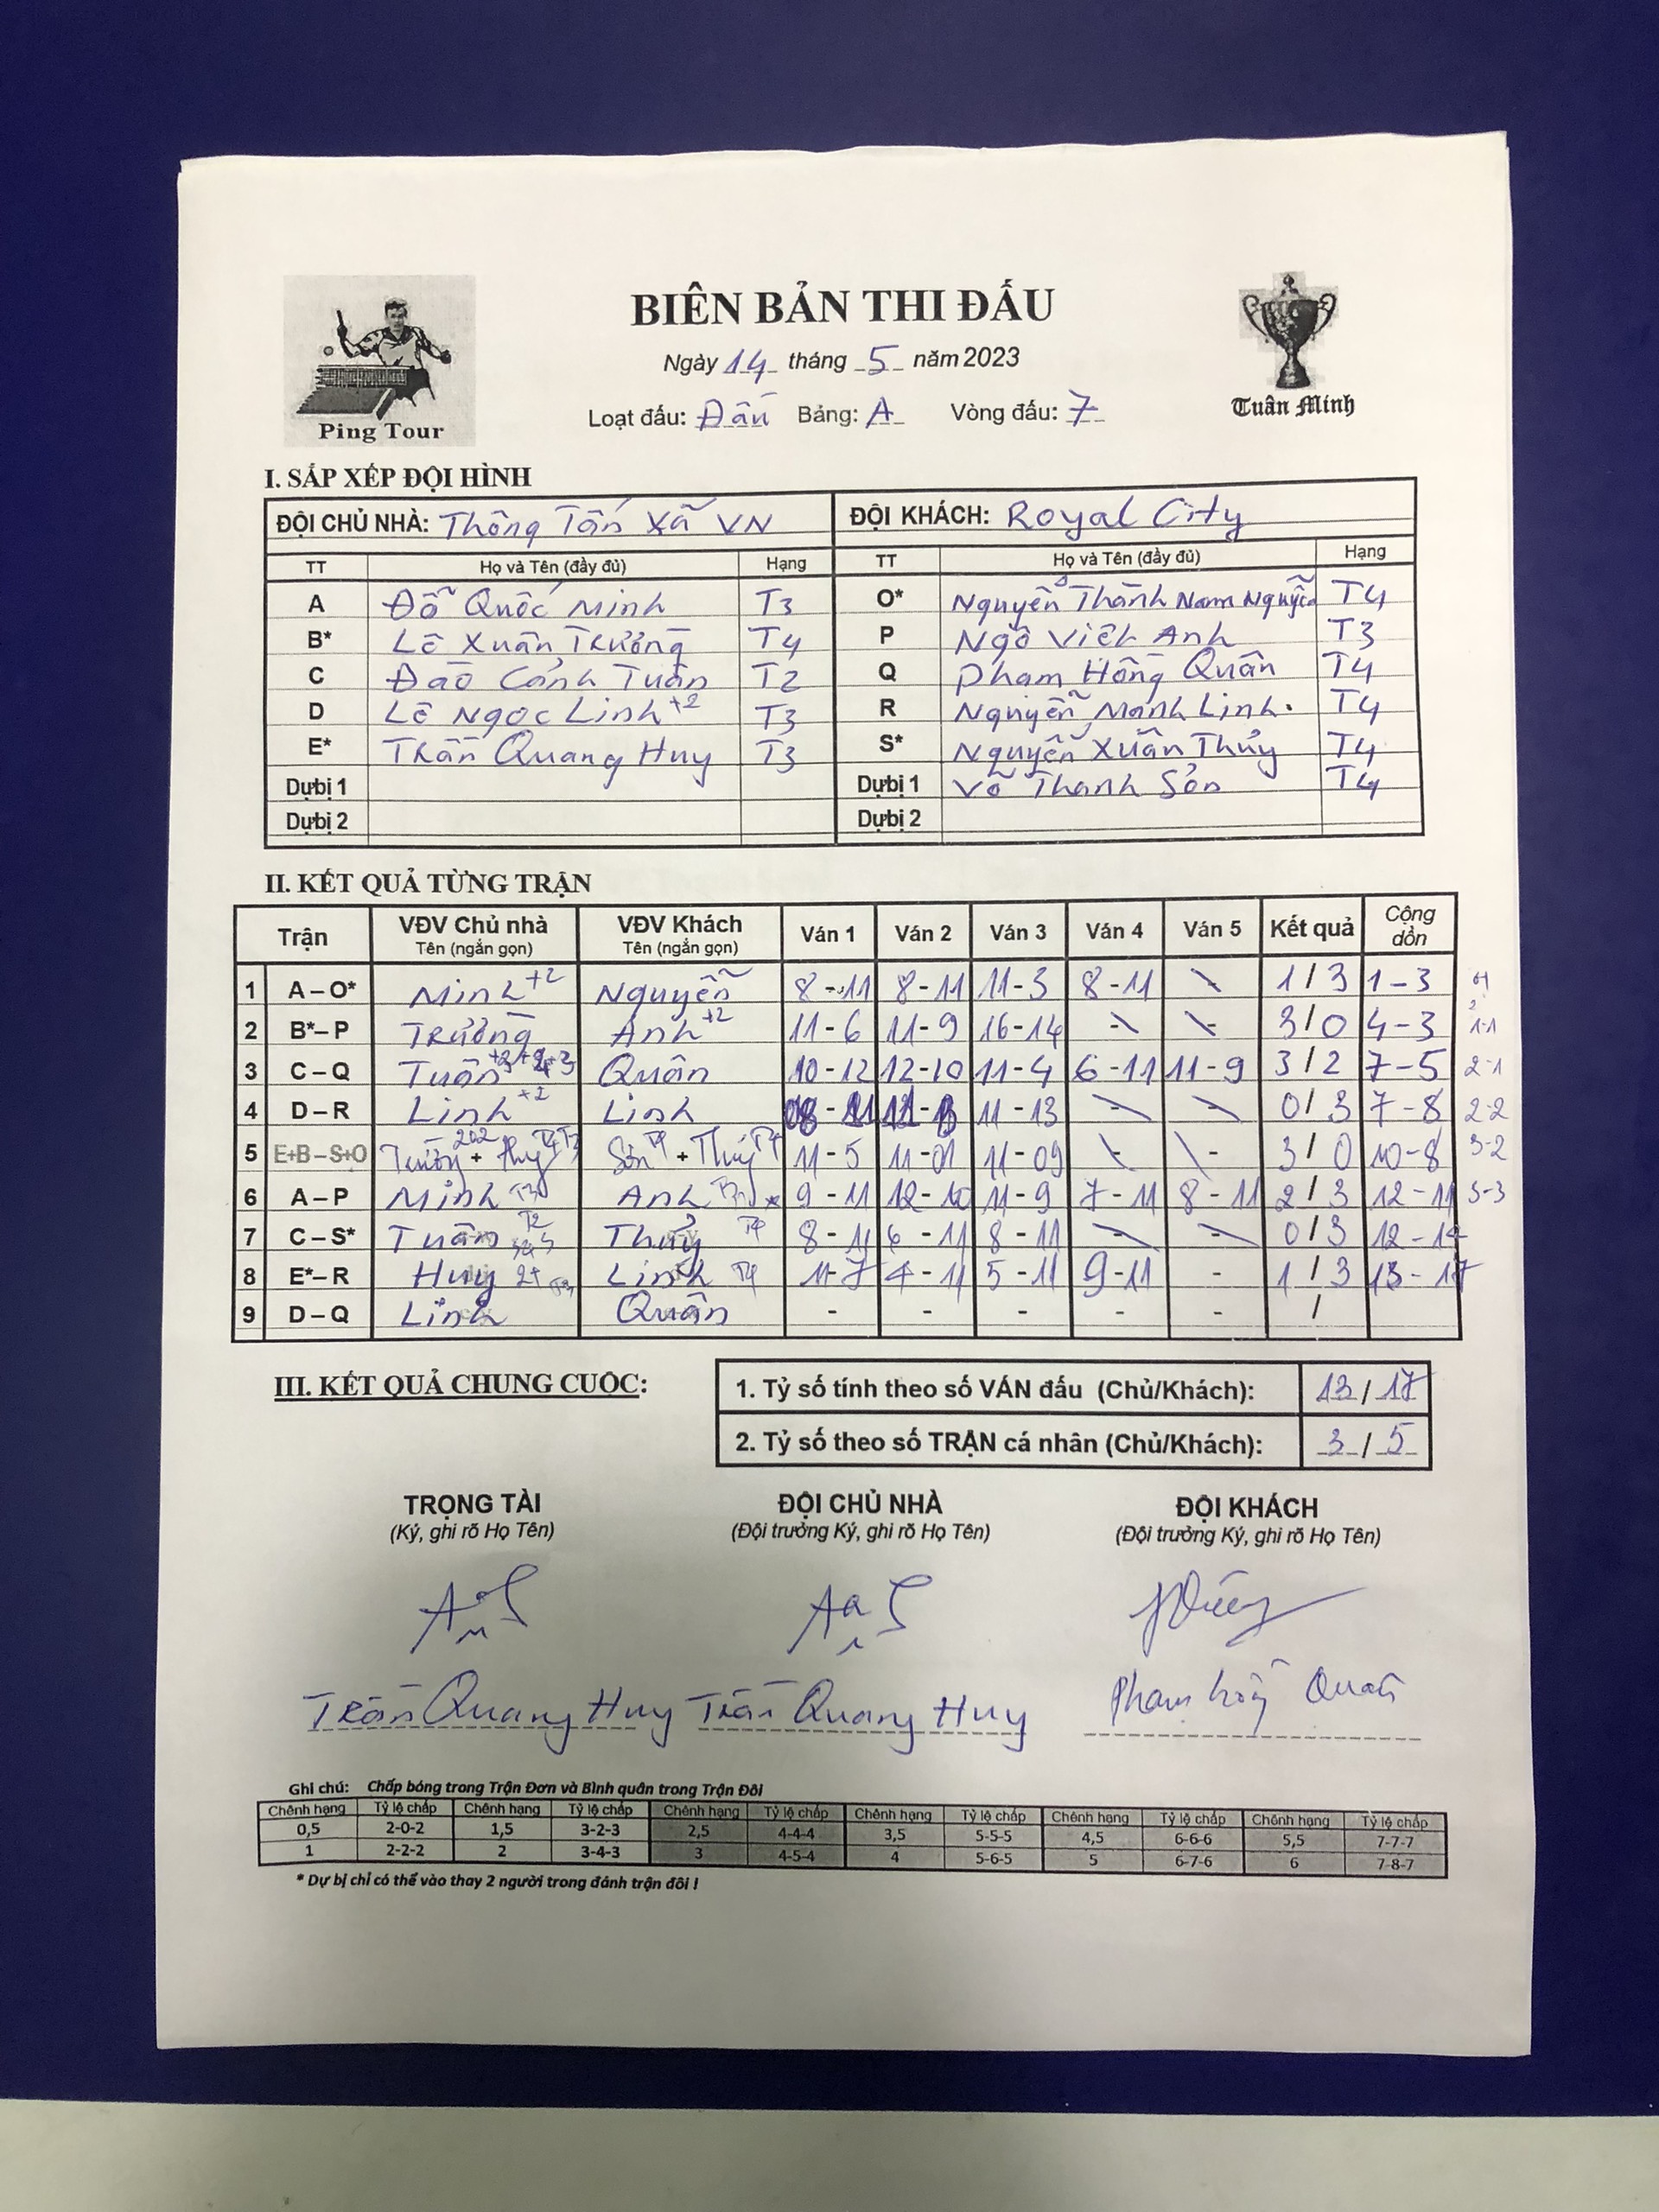 BIÊN BẢN THI ĐẤU
Ngày 14 tháng 5 năm 2023
Loạt đấu: Đấu Bảng: A Vòng đấu: 7
Ping Tour
Tuấn Minh
I. SẮP XẾP ĐỘI HÌNH
ĐỘI CHỦ NHÀ: Thông Tấn Xã VN ĐỘI KHÁCH: Royal City
TT Họ và Tên (đầy đủ) Hạng TT Họ và Tên (đầy đủ) Hạng
A Đỗ Quốc Minh T3 O* Nguyễn Thành Nam T4
B* Lê Xuân Trường T4 P Ngô Việt Anh T3
C Đào Cảnh Tuấn T2 Q Phạm Hồng Quân T4
D Lê Ngọc Linh +2 T3 R Nguyễn Mạnh Linh. T4
E* Trần Quang Huy T3 S* Nguyễn Xuân Thủy T4
Dự bị 1 Dự bị 1 Võ Thanh Sơn T4
Dự bị 2 Dự bị 2
II. KẾT QUẢ TỪNG TRẬN
Trận VĐV Chủ nhà Tên (ngắn gọn) VĐV Khách Tên (ngắn gọn) Ván 1 Ván 2 Ván 3 Ván 4 Ván 5 Kết quả Cộng dồn
1 A – O* Minh +2 Nguyễn 8 - 11 8 - 11 11 - 3 8 - 11 - 1 / 3 1 - 3
2 B* – P Trường Anh +2 11 - 6 11 - 9 16 - 14 - - 3 / 0 4 - 3 1-1
3 C – Q Tuấn Quân 10 - 12 12 - 10 11 - 4 6 - 11 11 - 9 3 / 2 7 - 5 2-1
4 D – R Linh +2 Linh 11 - 13 - - 0 / 3 7 - 8 2-2
5 E+B – S+O Trường + Huy Sơn + Thủy 11 - 5 11 - 01 11 - 09 - - 3 / 0 10 - 8 3-2
6 A – P Minh T3 Anh 9 - 11 12 - 10 11 - 9 7 - 11 8 - 11 2 / 3 12 - 11 3-3
7 C – S* Tuấn T2 Thủy T4 8 - 11 6 - 11 8 - 11 - - 0 / 3 12 - 14
8 E* – R Huy Linh T4 11 - 7 4 - 11 5 - 11 9 - 11 - 1 / 3 13 - 17
9 D – Q Linh Quân - - - - - /
III. KẾT QUẢ CHUNG CUỘC:
1. Tỷ số tính theo số VÁN đấu (Chủ/Khách): 13 / 17
2. Tỷ số theo số TRẬN cá nhân (Chủ/Khách): 3 / 5
TRỌNG TÀI ĐỘI CHỦ NHÀ ĐỘI KHÁCH
(Ký, ghi rõ Họ Tên) (Đội trưởng Ký, ghi rõ Họ Tên) (Đội trưởng Ký, ghi rõ Họ Tên)
Trần Quang Huy Trần Quang Huy Phạm Hồng Quân
Ghi chú: Chấp bóng trong Trận Đơn và Bình quân trong Trận Đôi
Chênh hạng Tỷ lệ chấp Chênh hạng Tỷ lệ chấp Chênh hạng Tỷ lệ chấp Chênh hạng Tỷ lệ chấp Chênh hạng Tỷ lệ chấp Chênh hạng Tỷ lệ chấp
0,5 2-0-2 1,5 3-2-3 2,5 4-4-4 3,5 5-5-5 4,5 6-6-6 5,5 7-7-7
1 2-2-2 2 3-4-3 3 4-5-4 4 5-6-5 5 6-7-6 6 7-8-7
* Dự bị chỉ có thể vào thay 2 người trong đánh trận đôi !